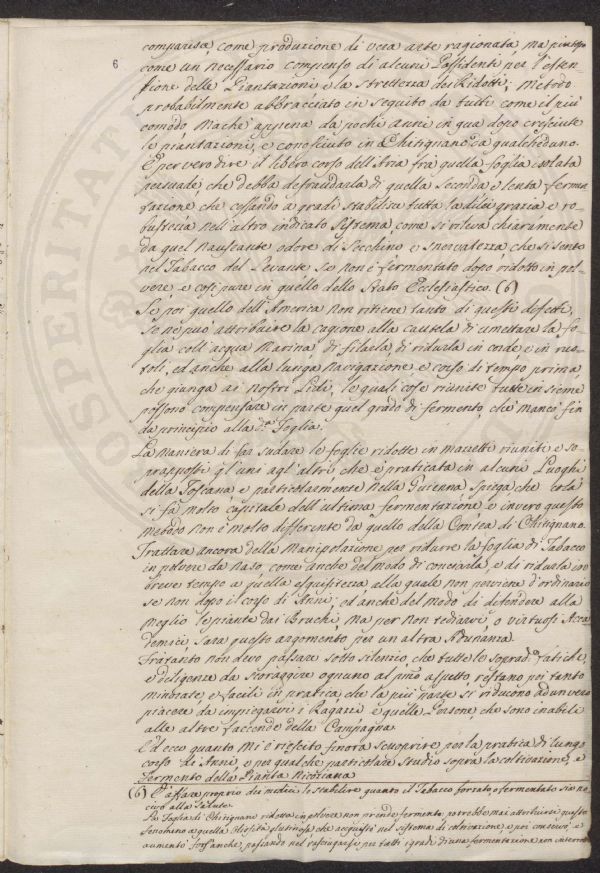 6
comparisce, come produzione di vera arte ragionata, ma piuttosto
come un necessario compenso di alcuni Possidenti per l'esten-
sione delle Piantazioni, e la strettezza dei Ridotti; Metodo
probabilmente abbracciato in seguito da tutti come il più
comodo, mache appena da pochi anni in qua dopo cresciute
le piantazioni, è conosciuto in Chitignano da qualcheduno.
E per vero dire il libero corso dell'Aria frà quella foglia isolata
persuade, che debba defraudarla di quella seconda e lenta fermen-
tazione, che cessando a gradi stabilizza tutta la di lei grazia e ro-
bustezza nell'altro indicato Sistema, come si rileva chiaramente
da quel nauseante odore di Secchino e snervatezza, che si sente
nel Tabacco del Levante se non è fermentato dopo ridotto in pol-
vere e così pure in quello dello Stato Ecclesiastico (6)
Se poi quello dell'America non ritiene tanto di questi difetti,
se ne può attribuire la cagione alla cautela di umettare la fo-
glia coll'acqua Marina, di filarla, di ridurla in corde e in ruo-
toli, ed anche alla lunga navigazione e corso di tempo prima
che giunga ai nostri Lidi, le quali cose riunite tutte insieme
possono compensare in parte quel grado di fermento, che mancò fin
da principio alla d.ª Foglia.
La maniera di far sudare le foglie ridotte in mazzetti riuniti e so-
prapposti gl'uni agl'altri che è praticata in alcuni Luoghi
della Toscana e particolarmente nella spiega, che colà
si fà molto capitale dell'ultima fermentazione, e invero questo
metodo non è molto differente da quello della Contea di Chitignano.
Trattare ancora della manipolazione per ridurre la foglia di Tabacco
in polvere da Naso, come anche del modo di conciarla, e di ridurla in
breve tempo a quella esquisitezza alla quale non perviene d'ordinario
se non dopo il corso di Anni, ed anche del modo di difendere alla
meglio le piante dai Bruchi, ma per non tediarvi, o virtuosi Acca
demici, sarà questo argomento per un altra Adunanza.
Frattanto non devo passare sotto silenzio, che tutte le soprad.e fatiche,
e diligenze da scoraggire ognuno al primo aspetto, restano poi tanto
minorate e facili in pratica, che la più parte si riducono ad un vero
piacere da impiegarvi i Ragazzi e quelle Persone, che sono inabili
alle altre faccende della Campagna.
Ed ecco quanto mi è riescito finora scuoprire per la pratica di lungo
corso di Anni, e per qualche particolare studio sopra la coltivazione, e
Fermento della Pianta Nicoziana
(6) È affare proprio dei medici lo stabilire quanto il Tabacco forzato e fermentato sia no-
civo alla Salute.
La Foglia di Chitignano ridotta in polvere non prende fermento. potrebbe mai attribuirsi questo
fenomeno a quella che acquistò nel sistema di coltivazione, e poi conservò, e
aumentò fors'anche, passando nel rasciugarsi per tutti i gradi di una fermentazione non interrotta